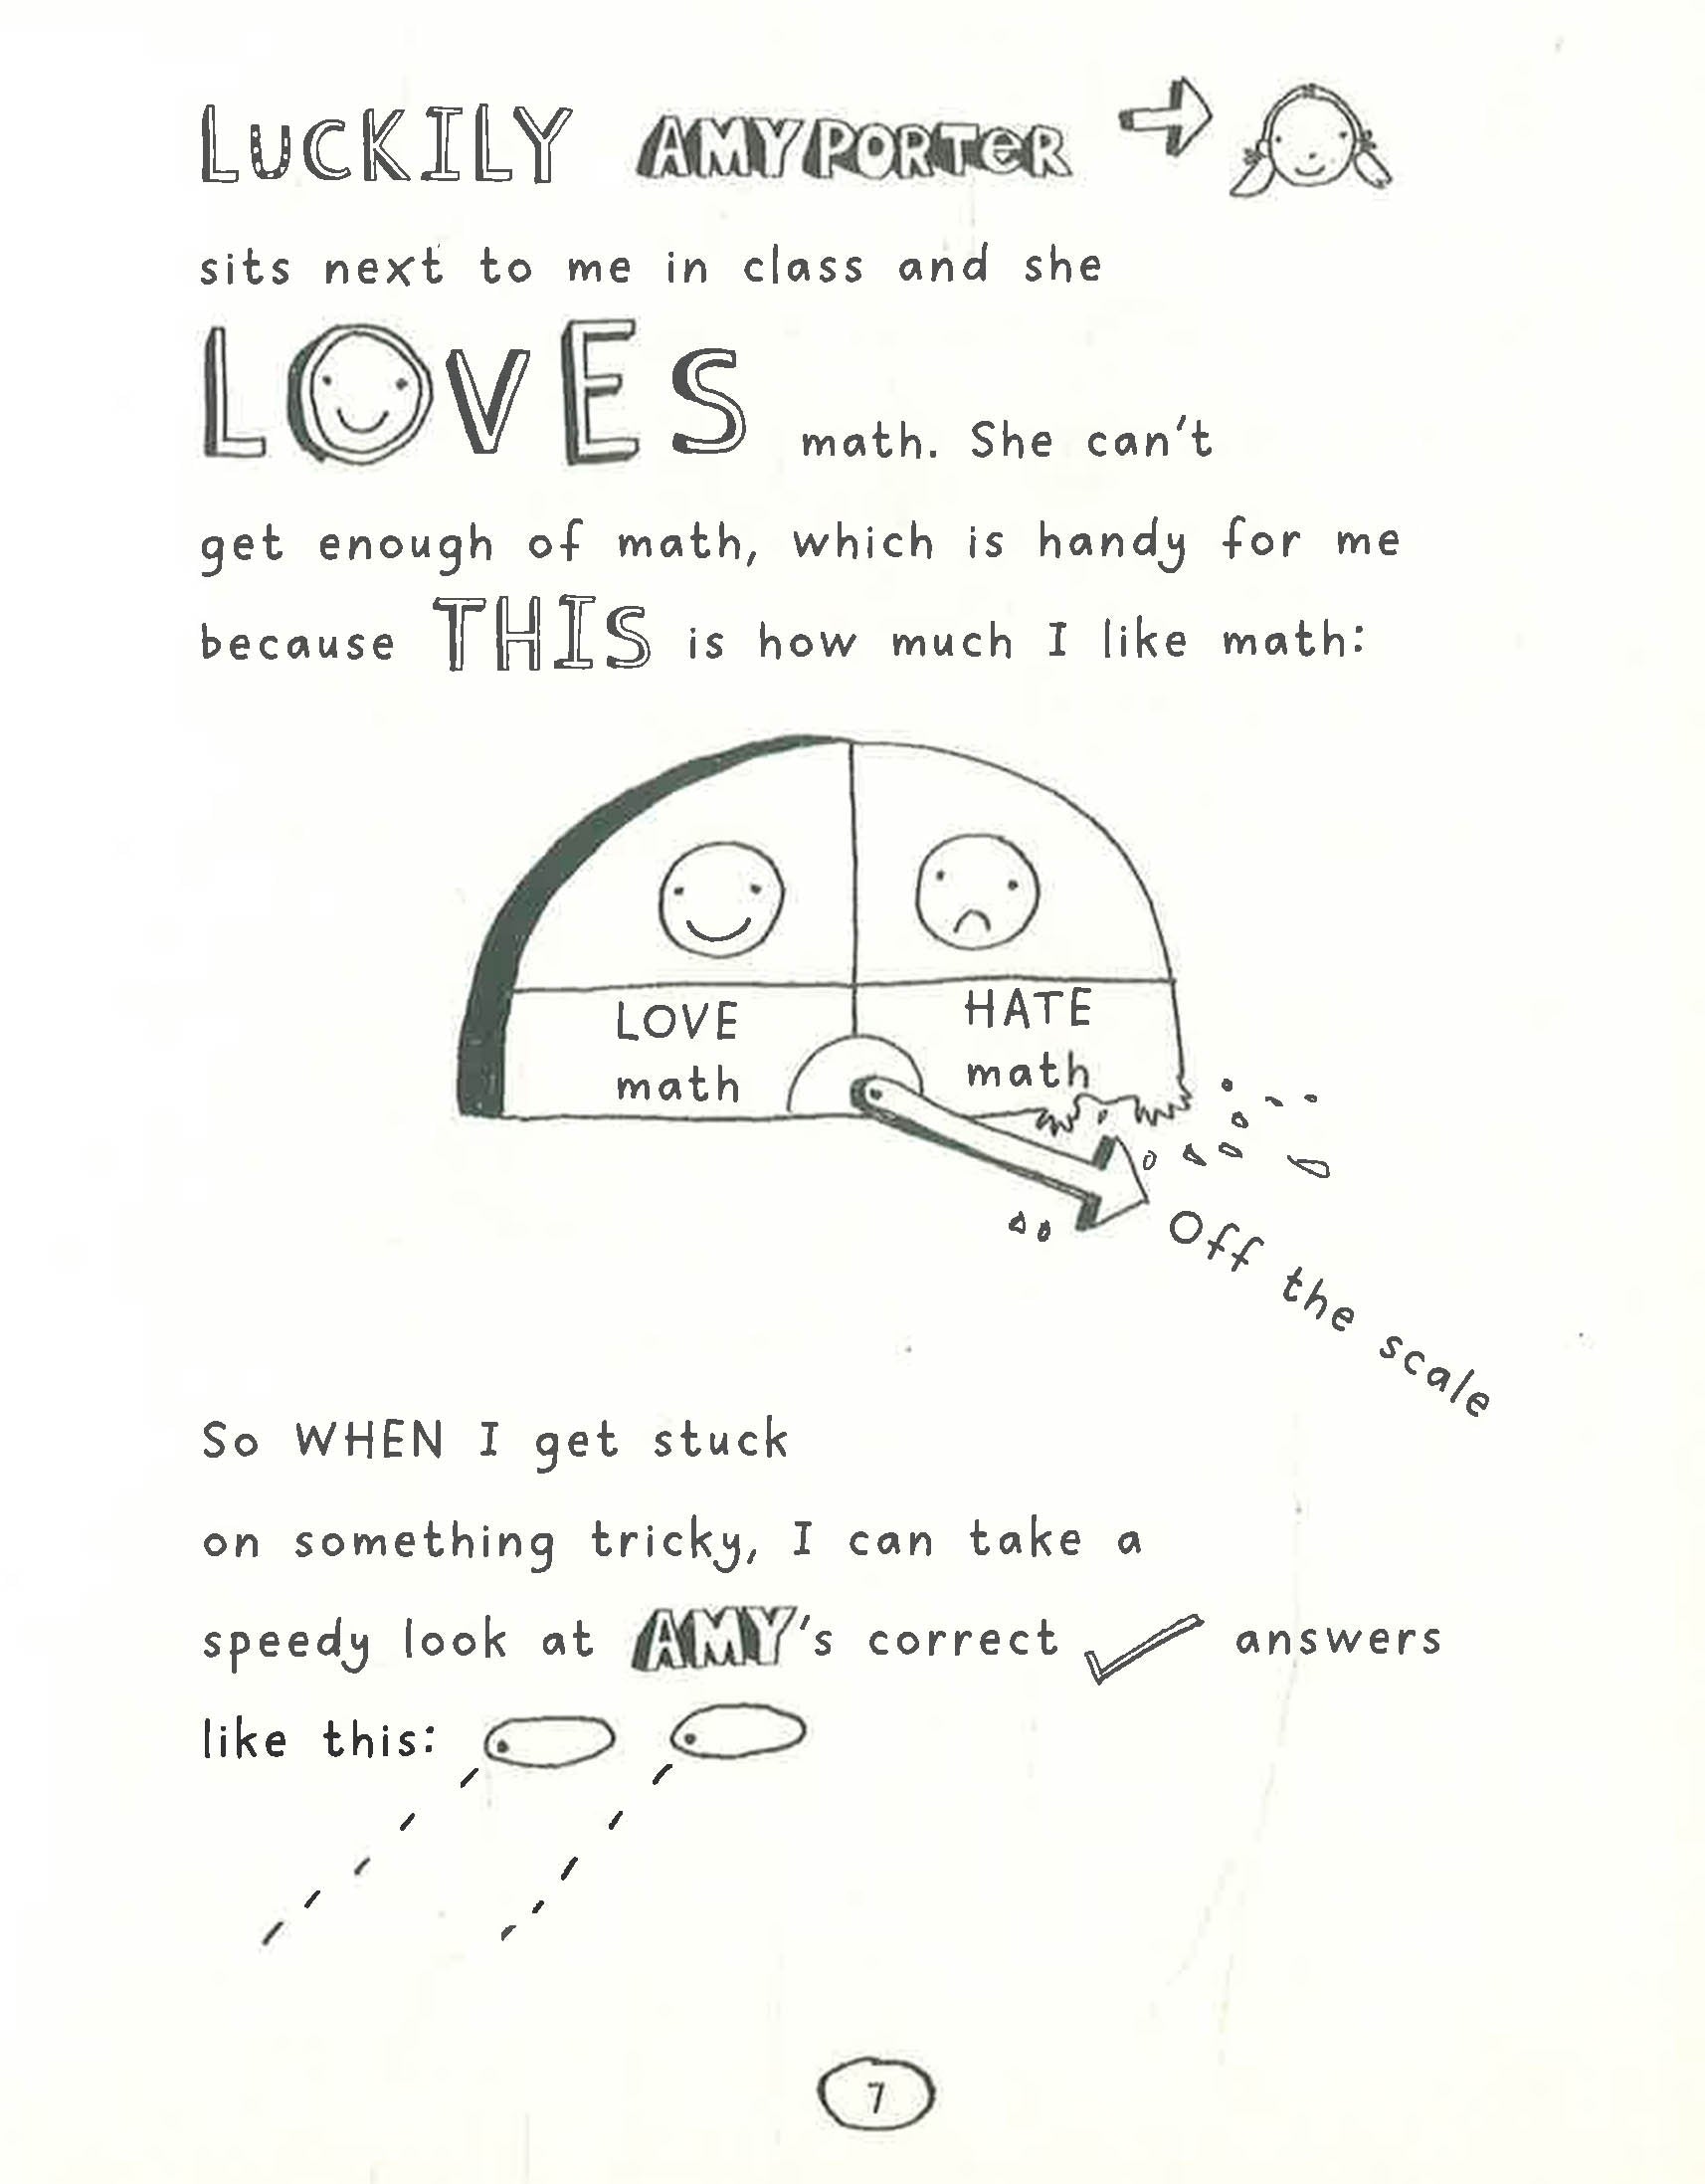 LUCKILY AMY PORTER
sits next to me in class and she
LOVES math. She can't
get enough of math, which is handy for me
because THIS is how much I like math:
LOVE
math
HATE
math
Off the scale
So WHEN I get stuck
on something tricky, I can take a
speedy look at AMY's correct answers
like this:
7